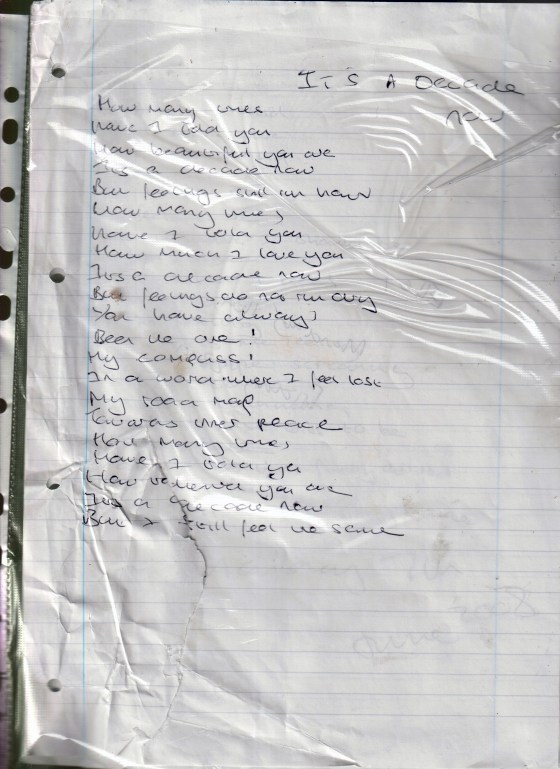 IT'S A Decade
now
How many times
have I told you
How beautiful you are
It's a decade now
But feelings still in
How many times
Have I told you
How much I love you
It's a decade now
But feelings do not run dry
You have always
Been the one!
My compass!
In a world where I feel lost
My road map
Towards inner peace
How many times
Have I told you
How you are
It's a decade now
But I still feel the same